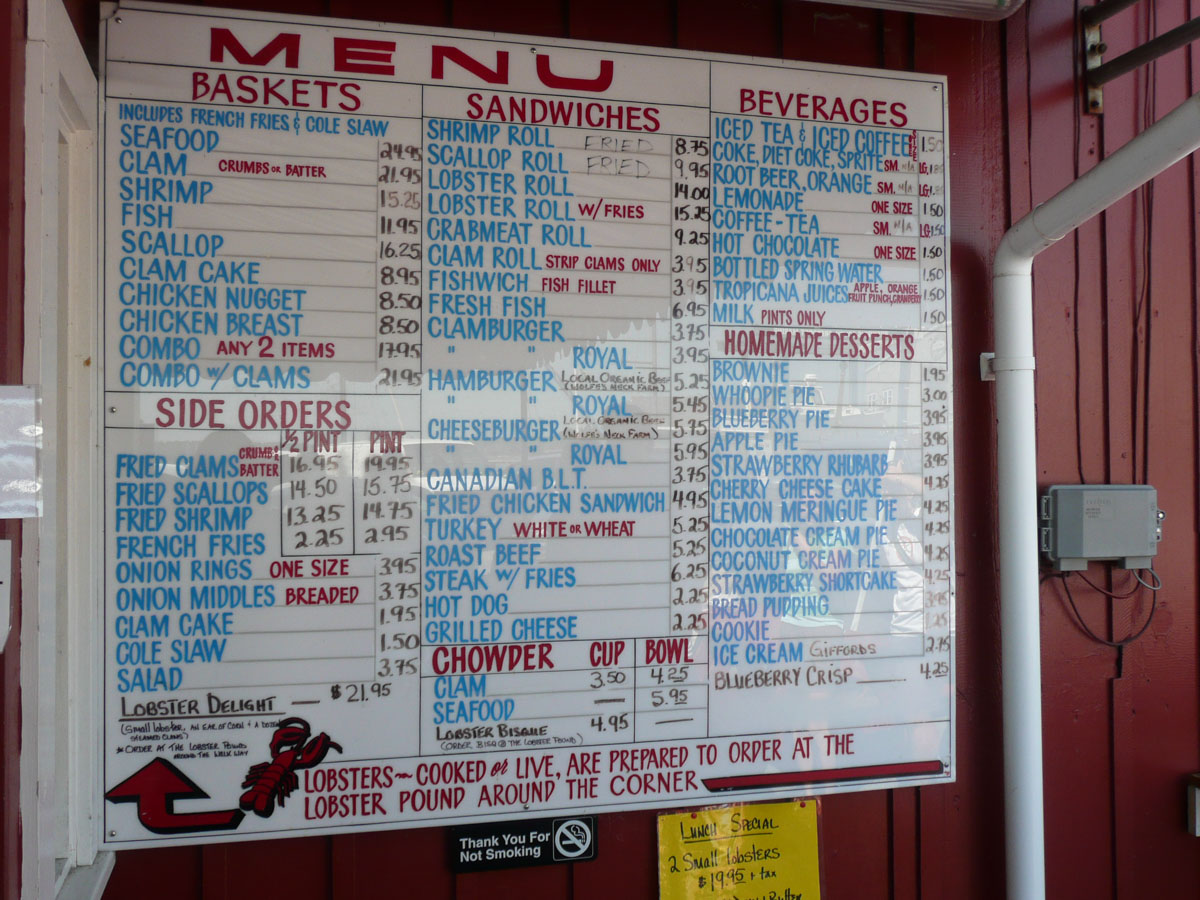 MENU
BASKETS
INCLUDES FRENCH FRIES & COLE SLAW
SEAFOOD 24.95
CLAM CRUMBS OR BATTER 21.95
SHRIMP 15.25
FISH 11.95
SCALLOP 16.25
CLAM CAKE 8.95
CHICKEN NUGGET 8.50
CHICKEN BREAST 8.50
COMBO ANY 2 ITEMS 17.95
COMBO W/ CLAMS 21.95
SIDE ORDERS
1/2 PINT PINT
FRIED CLAMS CRUMB & BATTER 16.95 19.95
FRIED SCALLOPS 14.50 15.75
FRIED SHRIMP 13.25 14.75
FRENCH FRIES 2.25 2.95
ONION RINGS ONE SIZE 3.95
ONION MIDDLES BREADED 3.75
CLAM CAKE 1.95
COLE SLAW 1.50
SALAD 3.75
LOBSTER DELIGHT — $21.95
(Small lobster, AN EAR OF CORN & A DOZEN
STEAMED CLAMS)
* ORDER AT THE LOBSTER POUND
AROUND THE WALK WAY
SANDWICHES
SHRIMP ROLL FRIED 8.75
SCALLOP ROLL FRIED 9.95
LOBSTER ROLL 14.00
LOBSTER ROLL W/FRIES 15.25
CRABMEAT ROLL 9.25
CLAM ROLL STRIP CLAMS ONLY 3.95
FISHWICH FISH FILLET 3.95
FRESH FISH 6.95
CLAMBURGER 3.75
" " ROYAL 3.95
HAMBURGER LOCAL ORGANIC BEEF (WOLFE'S NECK FARM) 5.25
" " ROYAL 5.45
CHEESEBURGER LOCAL ORGANIC BEEF (WOLFE'S NECK FARM) 5.75
" " ROYAL 5.95
CANADIAN B.L.T. 3.75
FRIED CHICKEN SANDWICH 4.95
TURKEY WHITE OR WHEAT 5.25
ROAST BEEF 5.25
STEAK W/ FRIES 6.25
HOT DOG 2.25
GRILLED CHEESE 2.25
CHOWDER CUP BOWL
CLAM 3.50 4.25
SEAFOOD — 5.95
LOBSTER BISQUE 4.95 —
(ORDER BISQ @ THE LOBSTER POUND)
BEVERAGES
ICED TEA & ICED COFFEE 1.50
COKE, DIET COKE, SPRITE SM. N/A LG
ROOT BEER, ORANGE SM. N/A LG
LEMONADE ONE SIZE 1.50
COFFEE-TEA SM. N/A LG 1.50
HOT CHOCOLATE ONE SIZE 1.50
BOTTLED SPRING WATER 1.50
TROPICANA JUICES APPLE, ORANGE FRUIT PUNCH, CRANBERRY 1.50
MILK PINTS ONLY 1.50
HOMEMADE DESSERTS
BROWNIE 1.95
WHOOPIE PIE 3.00
BLUEBERRY PIE 3.95
APPLE PIE 3.95
STRAWBERRY RHUBARB 3.95
CHERRY CHEESE CAKE 4.25
LEMON MERINGUE PIE 4.25
CHOCOLATE CREAM PIE 4.25
COCONUT CREAM PIE 4.25
STRAWBERRY SHORTCAKE 4.25
BREAD PUDDING 3.95
COOKIE 1.25
ICE CREAM GIFFORDS 2.75
BLUEBERRY CRISP — 4.25
LOBSTERS~COOKED or LIVE, ARE PREPARED TO ORDER AT THE
LOBSTER POUND AROUND THE CORNER
Thank You For
Not Smoking
LUNCH SPECIAL
2 Small lobsters
$19.95 + tax